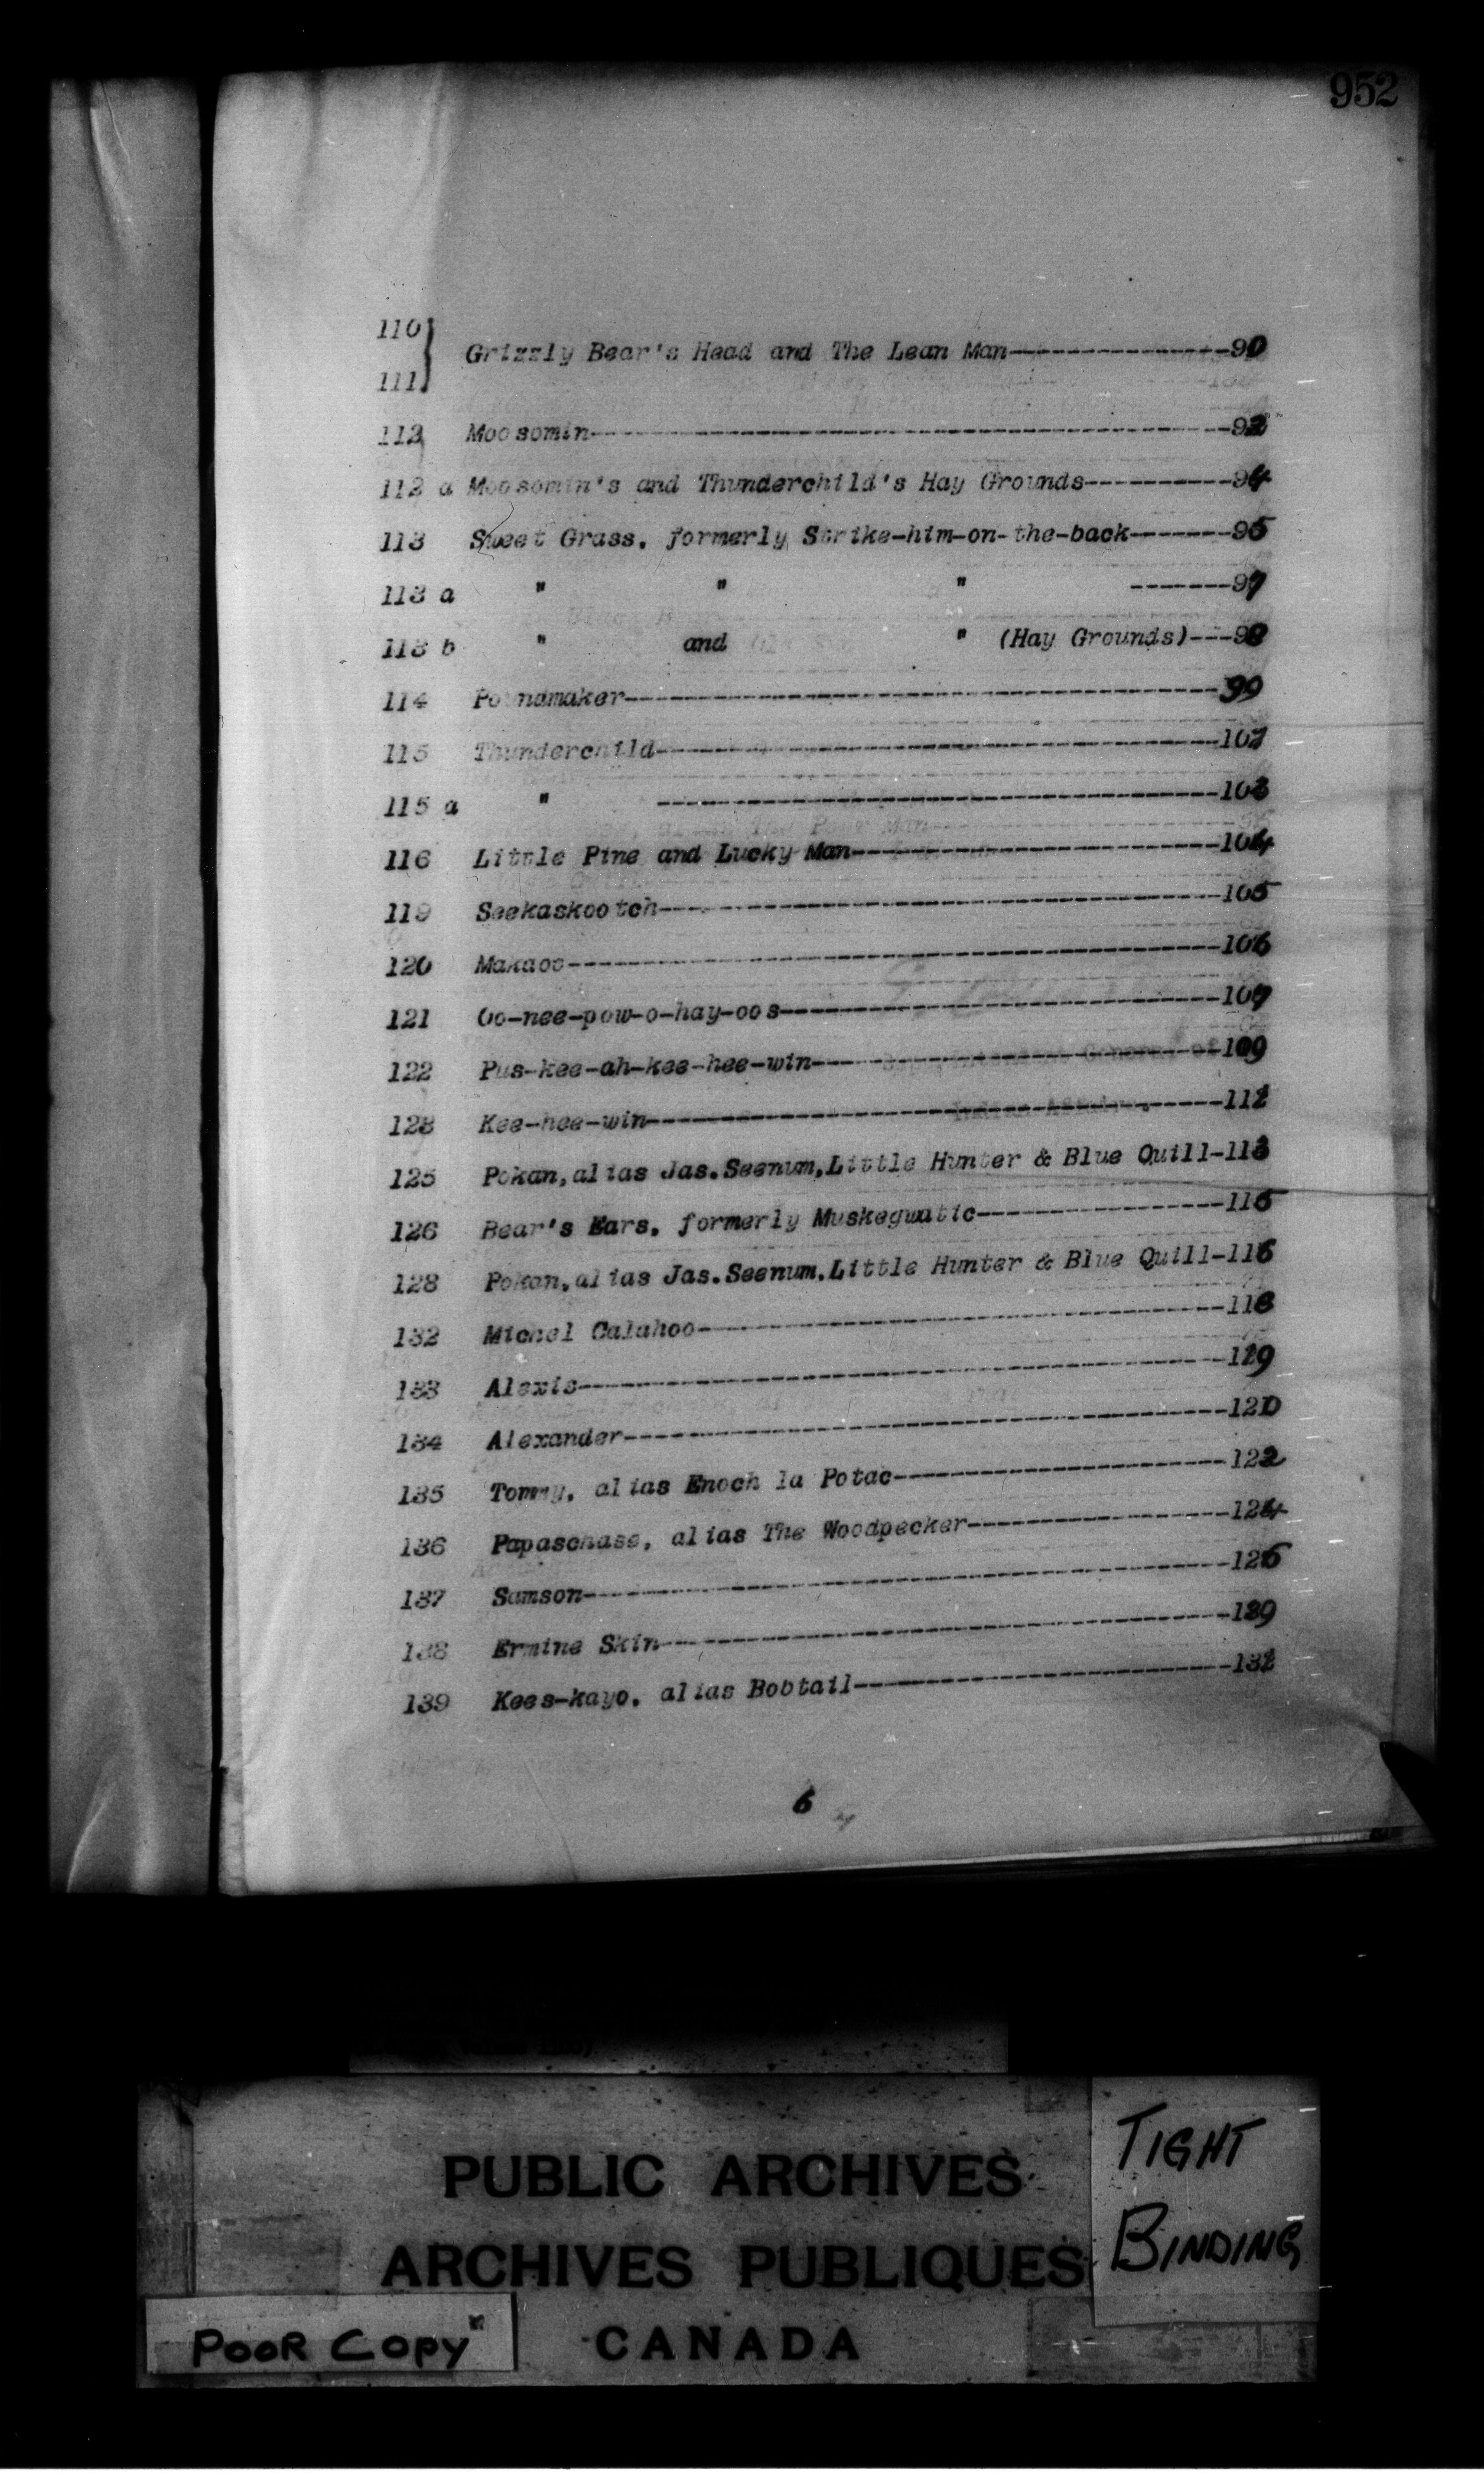 952
110
Grizzly Bear's Head and The Lean Man---------------90
111
112 Moosomin---------------------------------------------92
112 a Moosomin's and Thunderchild's Hay Grounds----------94
113 Sweet Grass, formerly Strike-him-on-the-back-------95
113 a " " " -------97
113 b " and " (Hay Grounds)---98
114 Poundmaker------------------------------------------99
115 Thunderchild---------------------------------------
115 a " ---------------------------------------103
116 Little Pine and Lucky Man-------------------------104
119 Seekaskootch---------------------------------------105
120 Makaoo----------------------------------------------106
121 Oo-nee-pow-o-hay-oos-----------------------------107
122 Pus-kee-ah-kee-hee-win---------------------------109
123 Kee-hee-win---------------------------------------112
125 Pokan,alias Jas.Seenum,Little Hunter & Blue Quill-113
126 Bear's Ears, formerly Muskegwatic-----------------115
128 Pokan,alias Jas.Seenum,Little Hunter & Blue Quill-116
132 Michel Calahoo------------------------------------118
133 Alexis---------------------------------------------119
134 Alexander-----------------------------------------120
135 Tommy, alias Enoch la Potac-----------------------122
136 Papaschase, alias The Woodpecker------------------124
137 Samson---------------------------------------------126
138 Ermine Skin---------------------------------------129
139 Kees-kayo, alias Bobtail--------------------------132
6
PUBLIC ARCHIVES
ARCHIVES PUBLIQUES
CANADA
TIGHT
BINDING
POOR COPY